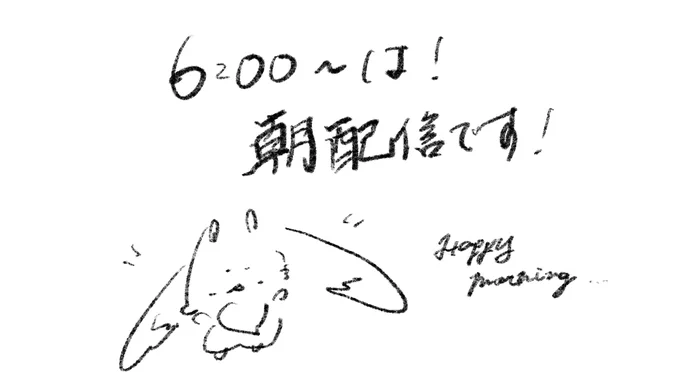 6:00〜は!
朝配信です!
Happy
morning...